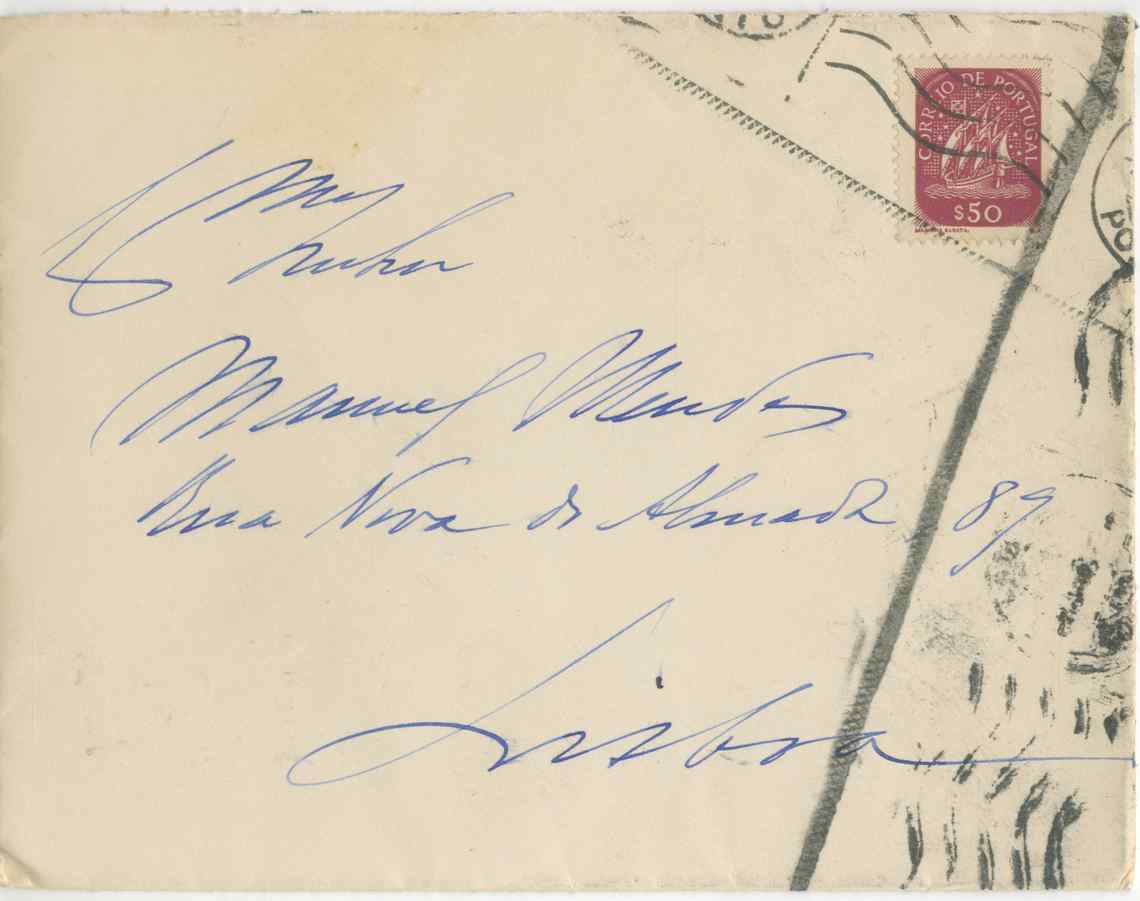 CORREIO DE PORTUGAL
$50
Manuel Mendes
Rua Nova do Almada 89
Lisboa